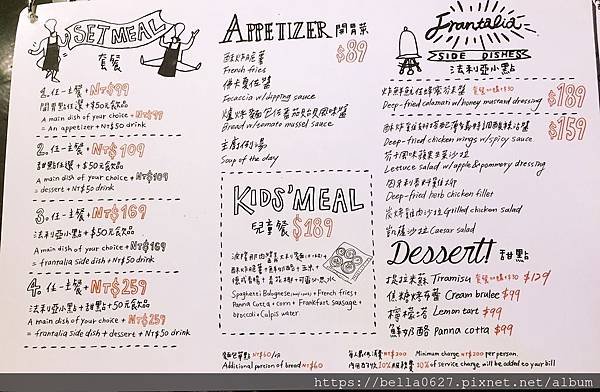 SET MEAL
套餐
1. 任一主餐 + NT$99
開胃菜任選 + $50元飲品
A main dish of your choice + NT$99
= An appetizer + NT$50 drink
2. 任一主餐 + NT$109
甜點任選 + $50元飲品
A main dish of your choice + NT$109
= dessert + NT$50 drink
3. 任一主餐 + NT$169
法利亞小點 + $50元飲品
A main dish of your choice + NT$169
= frantalia side dish + NT$50 drink
4. 任一主餐 + NT$259
法利亞小點 + 甜點 + 50元飲品
A main dish of your choice + NT$259
= frantalia side dish + dessert + NT$50 drink
APPETIZER 開胃菜
$89
酥炸脆薯
French fries
佛卡夏佐醬
Focaccia w/dipping sauce
Bread w/tomato mussel sauce
主廚例湯
Soup of the day
KIDS' MEAL
兒童餐 $189
Spaghetti Bolognese + French fries +
Panna Cotta + corn + Frankfurt sausage +
broccoli + Calpis water
麵包單點 NT$60/份
Additional portion of bread NT$60
Frantalia
SIDE DISHES
法利亞小點
炸鮮魷佐蜂蜜芥末醬 套餐加購+$30 $189
Deep-fried calamari w/honey mustard dressing
$159
Deep-fried chicken wings w/spicy sauce
Lettuce salad w/apple & pommery dressing
Deep-fried herb chicken fillet
炭烤雞肉沙拉 Grilled chicken salad
凱薩沙拉 Caesar salad
Dessert! 甜點
提拉米蘇 Tiramisu 套餐加購+$30 $129
焦糖烤布蕾 Cream brulee $99
檸檬塔 Lemon tart $99
鮮奶酪 Panna cotta $99
每人最低消費 NT$200 Minimum charge NT$200 per person.
內用酌收10%服務費 10% of service charge will be added to your bill
https://bella0627.pixnet.net/album